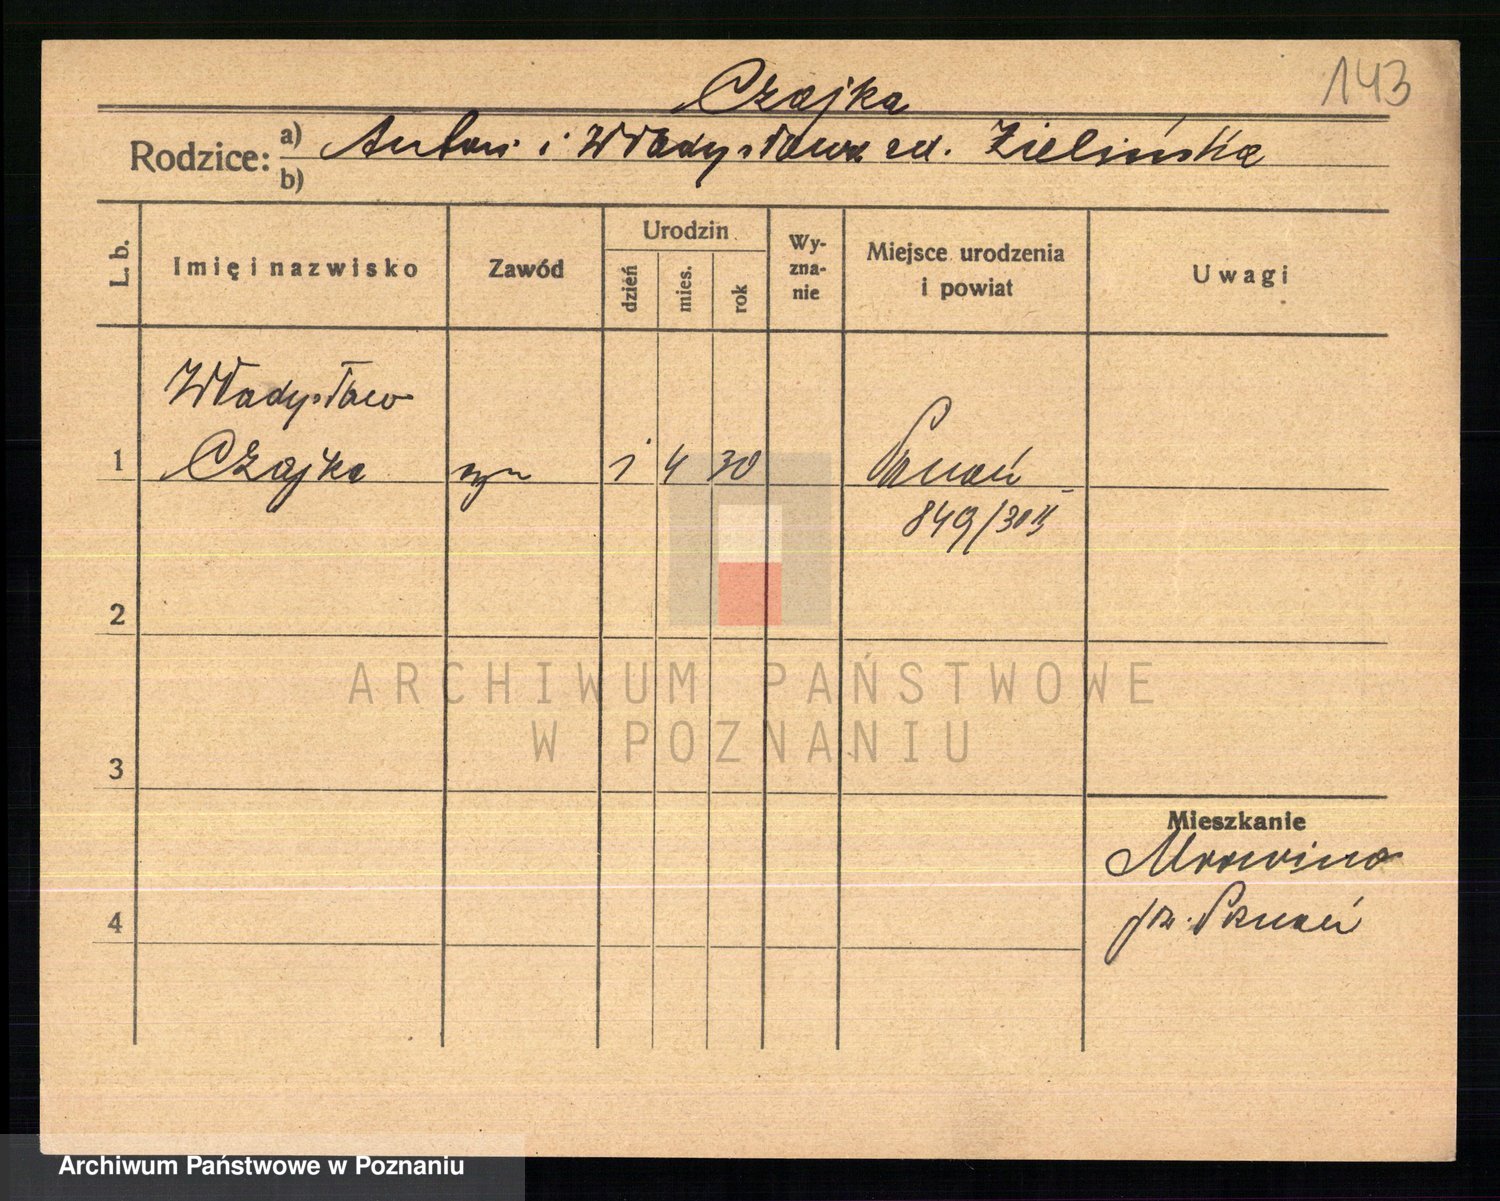 143
Czajka
Rodzice: a) Antoni i Władysława zd. Zielińska
b)
L. b.
Imię i nazwisko
Zawód
Urodzin
dzień
mies.
rok
Wy-
zna-
nie
Miejsce urodzenia
i powiat
Uwagi
Władysław
1 Czajka syn 1 4 30 Poznań
849/30
2
3
4
ARCHIWUM PAŃSTWOWE
W POZNANIU
Mieszkanie
Mrowino
p. Poznań
Archiwum Państwowe w Poznaniu